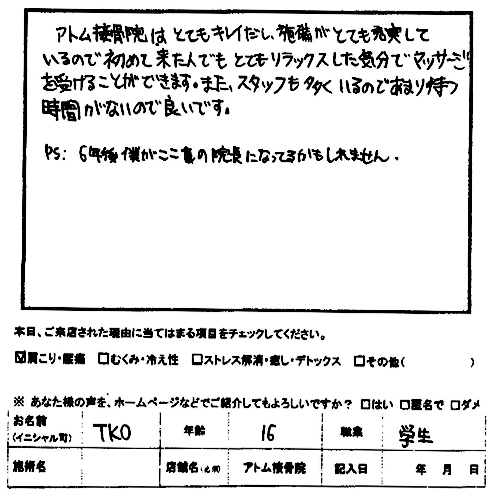 アトム接骨院は とてもキレイだし、施設がとても充実して
いるので初めて来た人でも とてもリラックスした気分でマッサージ
を受けることができます。また、スタッフも多くいるのであまり待つ
時間がないので良いです。
PS: 6年後僕がここ真の院長になってるかもしれません.
本日、ご来店された理由に当てはまる項目をチェックしてください。
☑肩こり・腰痛 □むくみ・冷え性 □ストレス解消・癒し・デトックス □その他( )
※ あなた様の声を、ホームページなどでご紹介してもよろしいですか? □はい □匿名で □ダメ
お名前(イニシャル可) TKO 年齢 16 職業 学生
施術名 店舗名 アトム接骨院 記入日 年 月 日